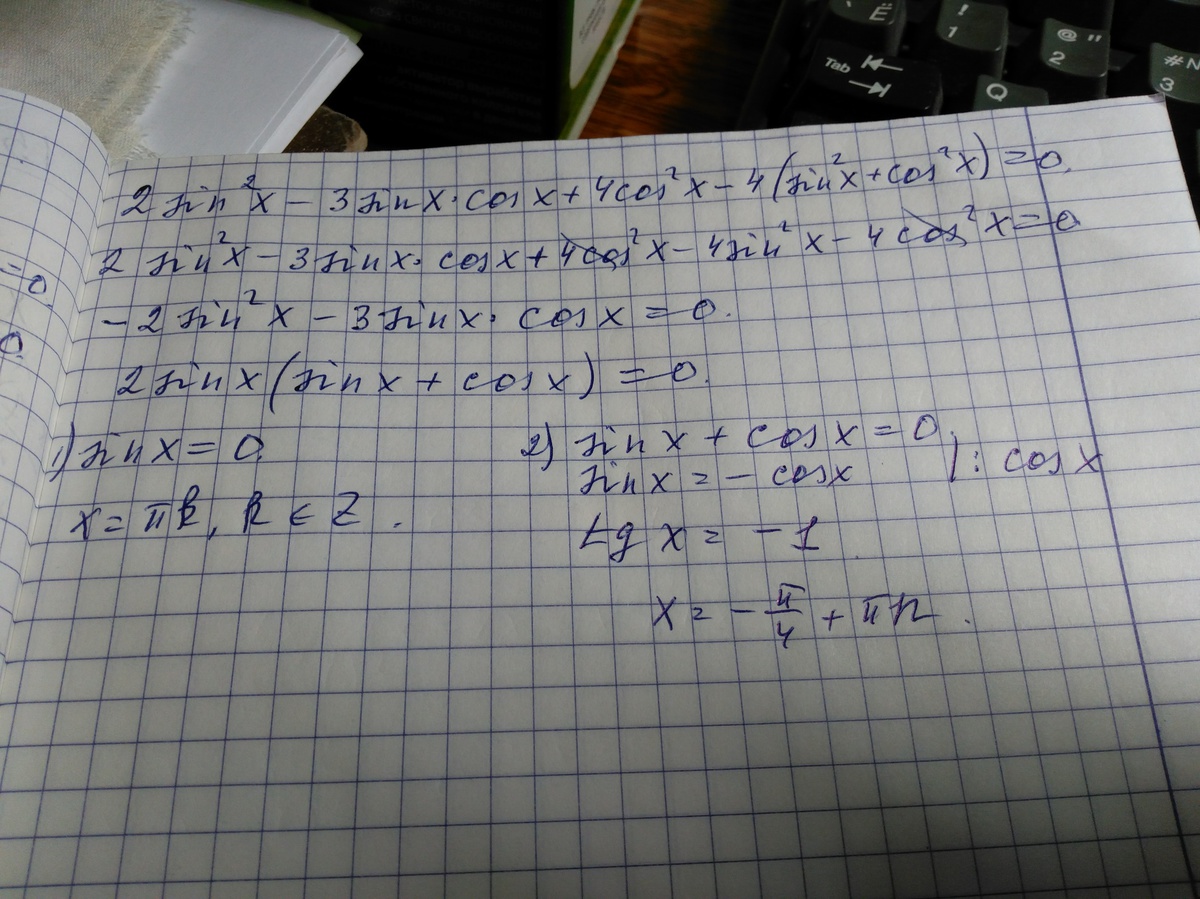 Ё
!
1
@ "
2
#N
3
Tab
Q
2 sin²x - 3 sin x · cos x + 4cos²x - 4(sin²x + cos²x) = 0.
2 sin²x - 3 sin x · cos x + 4cos²x - 4sin²x - 4 cos²x = 0
= 0.
- 2 sin²x - 3 sin x · cos x = 0.
0
2 sin x (sin x + cos x) = 0.
1) sin x = 0.
2) sin x + cos x = 0.
sin x = - cos x | : cos x
x = πk, k ∈ Z.
tg x = - 1
x = - π/4 + πn.